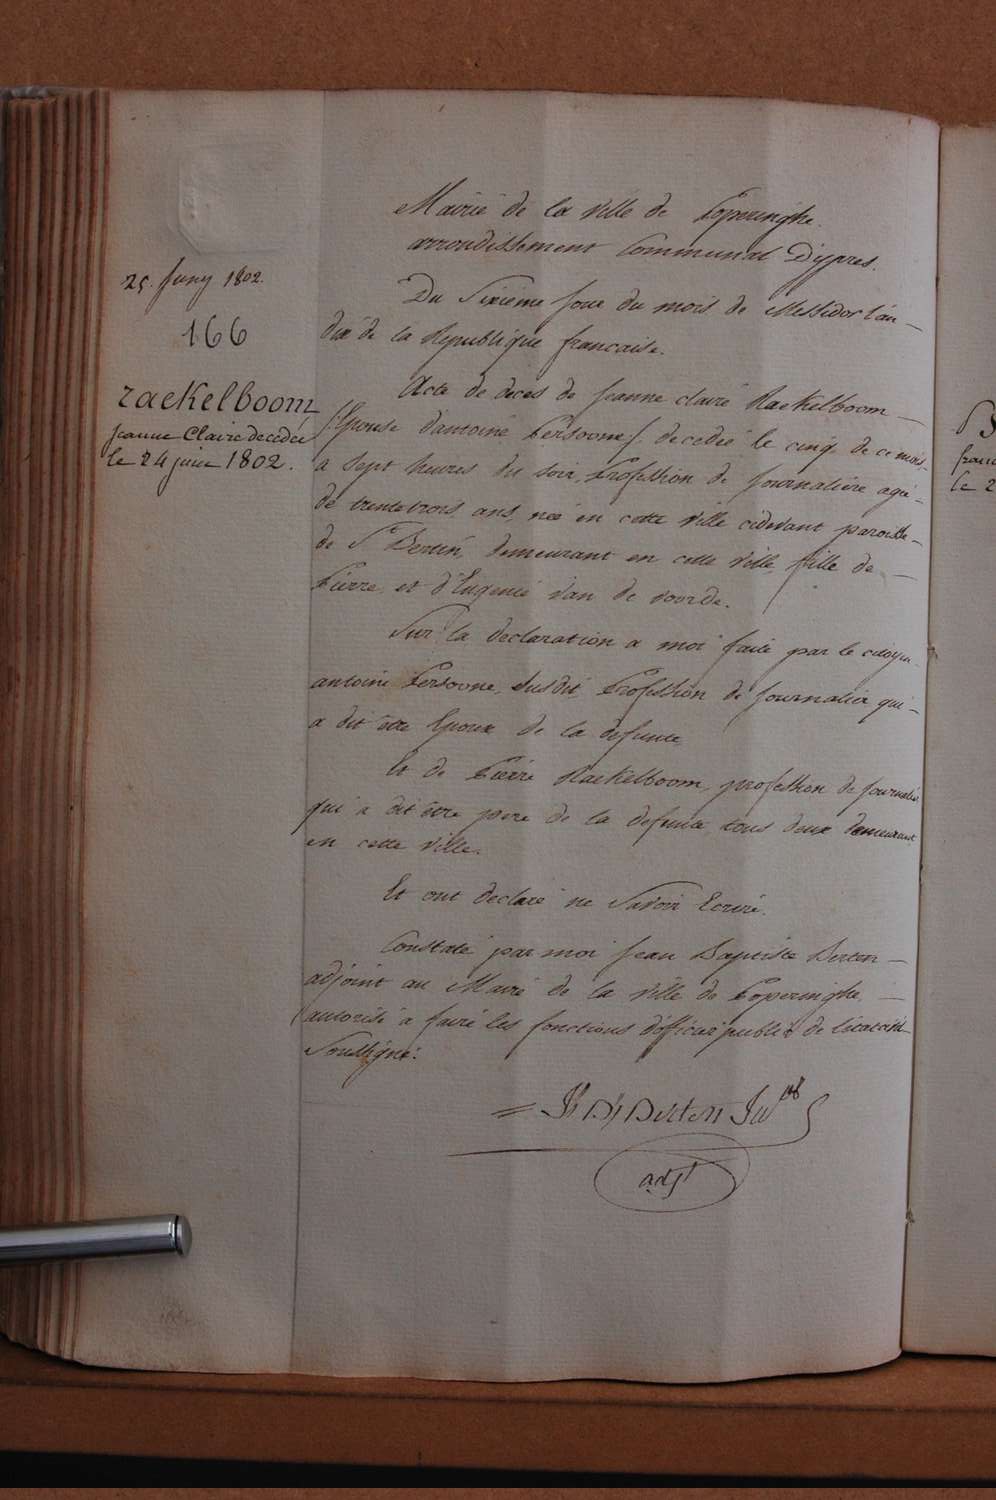 25. Juny 1802.
166
raekelboom
Jeanne Claire decedée
le 24 juin 1802.
Mairie de la Ville de Poperinghe.
arrondissement Communal D'ypres.
Du Sixieme Jour du mois de Messidor l'an —
dix de la Republique francaise.
Acte de décès de Jeanne claire Raekelboom —
Epouse d'antoine Persoone decedée le cinq de ce mois,
a Sept heures du soir, Profession de Journaliere ageé —
de trente trois ans, neé en cette ville cidevant paroisse —
de St Bertin, demeurant en cette Ville, fille de —
Pierre, et d'Eugenie Van de voorde.
Sur la declaration a moi faite par le citoyen
antoine Persoone, Susdit Profession de Journalier qui —
a dit être Epoux de la defunte,
Et de Pierre Raekelboom, profession de Journalier
qui a dit être pere de la defunte tous deux demeurant
en cette Ville.
Et ont declaré ne Savoir Ecrire.
Constaté par moi Jean Baptiste Berten —
adjoint au Maire de la Ville de Poperinghe, —
autorisé a faire les fonctions d'officier public de l'etat civil
Soussigné:
Berten
adjt
f
franc
le 2